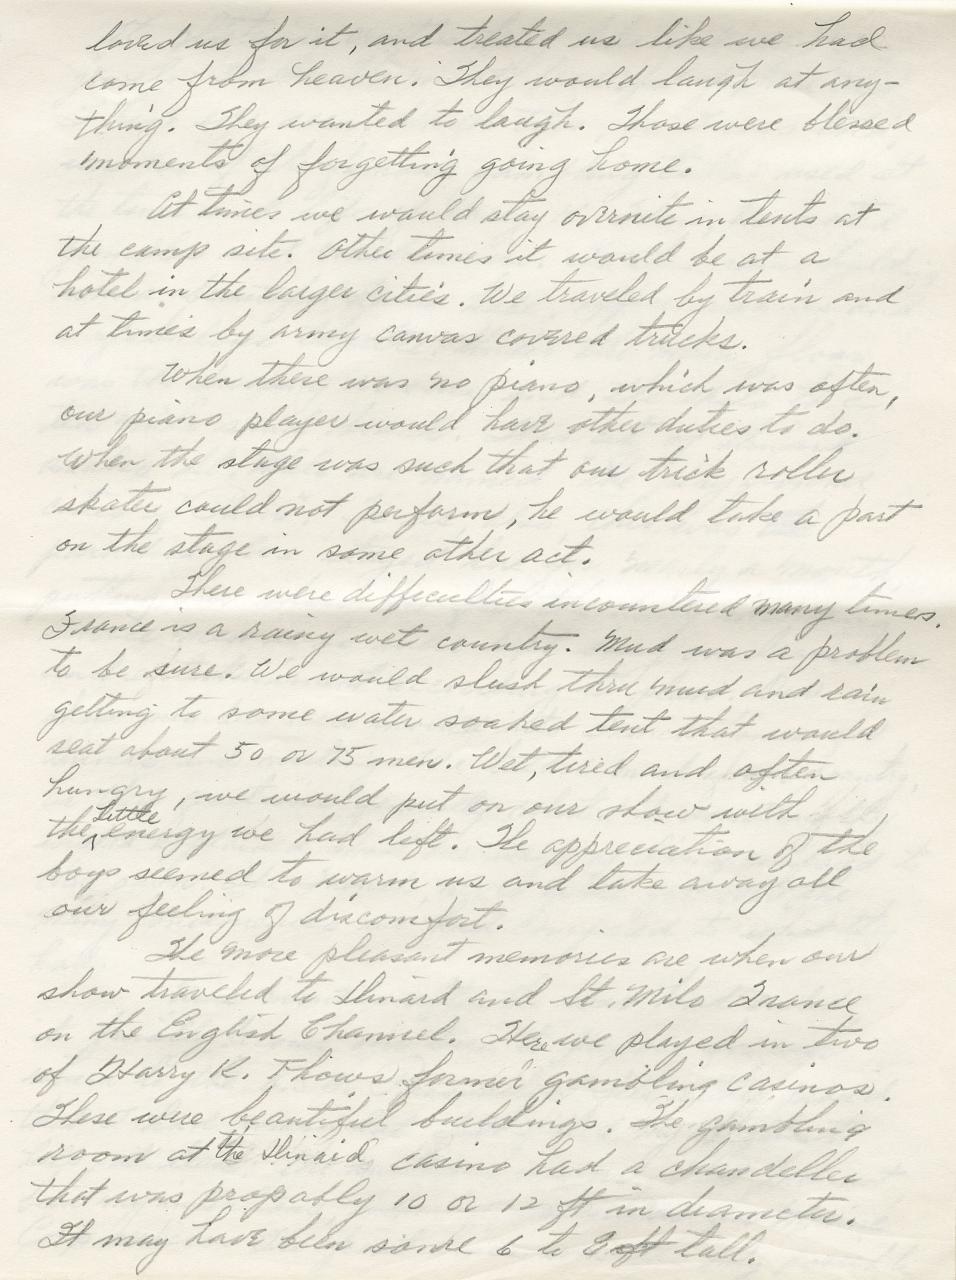 loved us for it, and treated us like we had
come from heaven. They would laugh at any-
thing. They wanted to laugh. Those were blessed
moments of forgetting going home.
At times we would stay overnite in tents at
the camp site. Other times it would be at a
hotel in the larger cities. We traveled by train and
at times by army canvas covered trucks.
When there was no piano, which was often,
our piano player would have other duties to do.
When the stage was such that our trick roller
skater could not perform, he would take a part
on the stage in some other act.
There were difficulties incountered many times.
France is a rainy wet country. Mud was a problem
to be sure. We would slush thru mud and rain
getting to some water soaked tent that would
seat about 50 or 75 men. Wet, tired and often
hungry, we would put on our show with
the little energy we had left. The appreciation of the
boys seemed to warm us and take away all
our feeling of discomfort.
The more pleasant memories are when our
show traveled to Dinard and St. Milo France
on the English Channel. Here we played in two
of Harry K. Thows former gambling casinos.
These were beautiful buildings. The gambling
room at the Dinard casino had a chandelier
that was propably 10 or 12 ft in diameter.
It may have been some 6 to 8 ft tall.